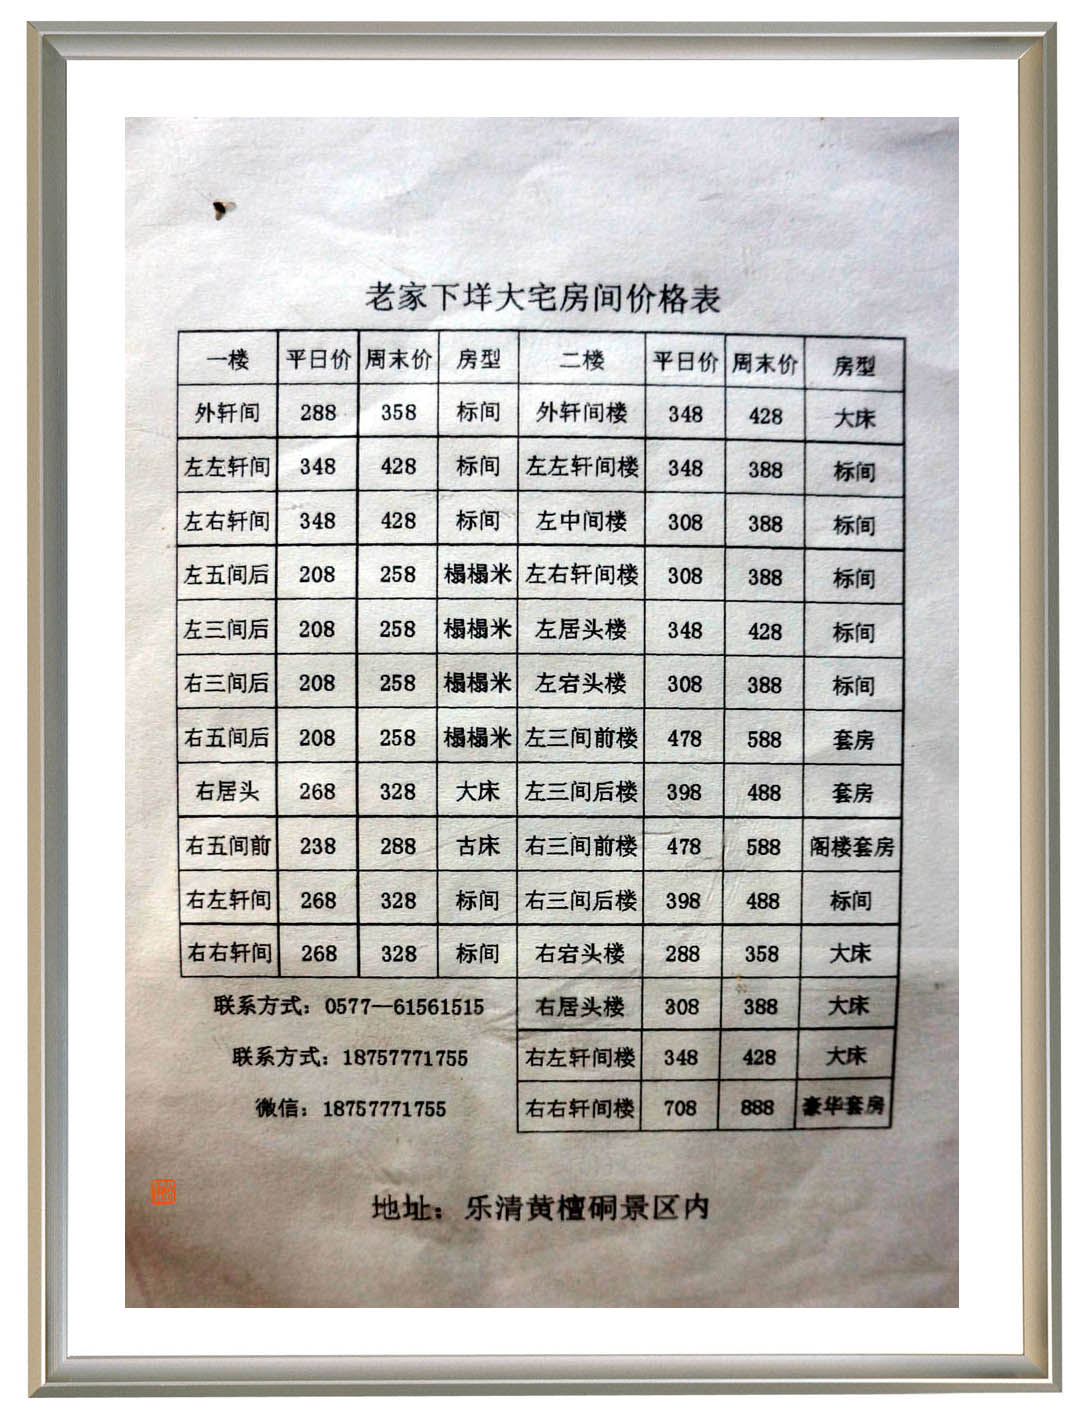 老家下垟大宅房间价格表
一楼 平日价 周末价 房型 二楼 平日价 周末价 房型
外轩间 288 358 标间 外轩间楼 348 428 大床
左左轩间 348 428 标间 左左轩间楼 348 388 标间
左右轩间 348 428 标间 左中间楼 308 388 标间
左五间后 208 258 榻榻米 左右轩间楼 308 388 标间
左三间后 208 258 榻榻米 左居头楼 348 428 标间
右三间后 208 258 榻榻米 左宕头楼 308 388 标间
右五间后 208 258 榻榻米 左三间前楼 478 588 套房
右居头 268 328 大床 左三间后楼 398 488 套房
右五间前 238 288 古床 右三间前楼 478 588 阁楼套房
右左轩间 268 328 标间 右三间后楼 398 488 标间
右右轩间 268 328 标间 右宕头楼 288 358 大床
联系方式：0577—61561515 右居头楼 308 388 大床
联系方式：18757771755 右左轩间楼 348 428 大床
微信：18757771755 右右轩间楼 708 888 豪华套房
地址：乐清黄檀硐景区内